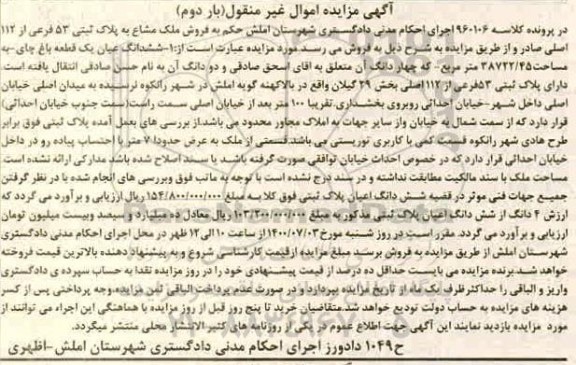 آگهی مزایده اموال غیر منقول(بار دوم)
در پرونده کلاسه ۹۶۰۱۰۶ اجرای احکام مدنی دادگستری شهرستان املش حکم به فروش ملک مشاع به پلاک ثبتی ۵۳ فرعی از ۱۱۲
اصلی صادر و از طریق مزایده به شرح ذیل به فروش می رسد مورد مزایده عبارت است از:۱-ششدانگ عیان یک قطعه باغ چای-به
مساحت۳۸۷۲۲/۴۵ متر مربع- که چهار دانگ آن متعلق به اقای اسحق صادقی و دو دانگ آن به نام حسن صادقی انتقال یافته است.
دارای پلاک ثبتی ۵۳فرعی از ۱۱۲ اصلی بخش ۲۹ گیلان واقع در بالاکهنه گویه املش در شهر رانکوه نرسیده به میدان اصلی خیابان
اصلی داخل شهر-خیابان احداثی روبروی بخشداری،تقریبا ۱۰۰ متر بعد از خیابان اصلی سمت راست(سمت جنوب خیابان احداثی)
قرار دارد که از سمت شمال به خیابان واز سایر جهات به املاک مجاور محدود می باشد.از بررسی های بعمل آمده پلاک ثبتی فوق برابر
طرح هادی شهر رانکوه قسمت کمی با کاربری توریستی می باشد.قسمتی از ملک به عرض حدودا ۷ متر با احتساب پیاده رو در داخل
خیابان احداثی قرار دارد که در خصوص احداث خیابان توافقی صورت گرفته باشد یا سند اصلاح شده باشد مدارکی ارائه نشده است.
مساحت ملک با سند مالکیت مطابقت نداشته و در سند درج نشده است با توجه به ماتب فوق وبررسی های انجام شده با در نظر گرفتن
جمیع جهات فنی موثر در قضیه شش دانگ اعیان پلاک ثبتی فوق کلا به مبلغ ۱۵۴/۸۰۰/۰۰۰/۰۰۰ ریال ارزیابی و برآورد می گردد که
ارزش ۴ دانگ از شش دانگ اعیان پلاک ثبتی مذکور به مبلغ ۱۰۳/۲۰۰/۰۰۰/۰۰۰ ریال معادل ده میلیارد و سیصد وبیست میلیون تومان
ارزیابی و برآورد می گردد. مقرر است در روز شنبه مورخ ۱۴۰۰/۰۷/۰۳ از ساعت ۱۰ الی ۱۲ ظهر در محل اجرای احکام مدنی دادگستری
شهرستان املش از طریق مزایده به فروش برسد. مبلغ مزایده ازقیمت کارشناسی شروع و به پیشنهاد دهنده بالاترین قیمت فروخته
خواهد شد.برنده مزایده می بایست حداقل ده درصد از قیمت پیشنهادی خود را در روز مزایده نقدا به حساب سپرده ی دادگستری
واریز و الباقی را حداکثر ظرف یک ماه از تاریخ مزایده بپردازد و در صورت عدم پرداخت الباقی ثمن مزایده، وجه پرداختی پس از کسر
هزینه های مزایده به حساب دولت تودیع خواهد شد.متقاضیان خرید تا پنج روز قبل از روز مزایده با هماهنگی این اجراء می توانند از
مورد مزایده بازدید نمایند این آگهی جهت اطلاع عموم در یکی از روزنامه های کثیر الانتشار محلی منتشر میگردد.
ح۱۰۴۹ دادورز اجرای احکام مدنی دادگستری شهرستان املش-اظهری